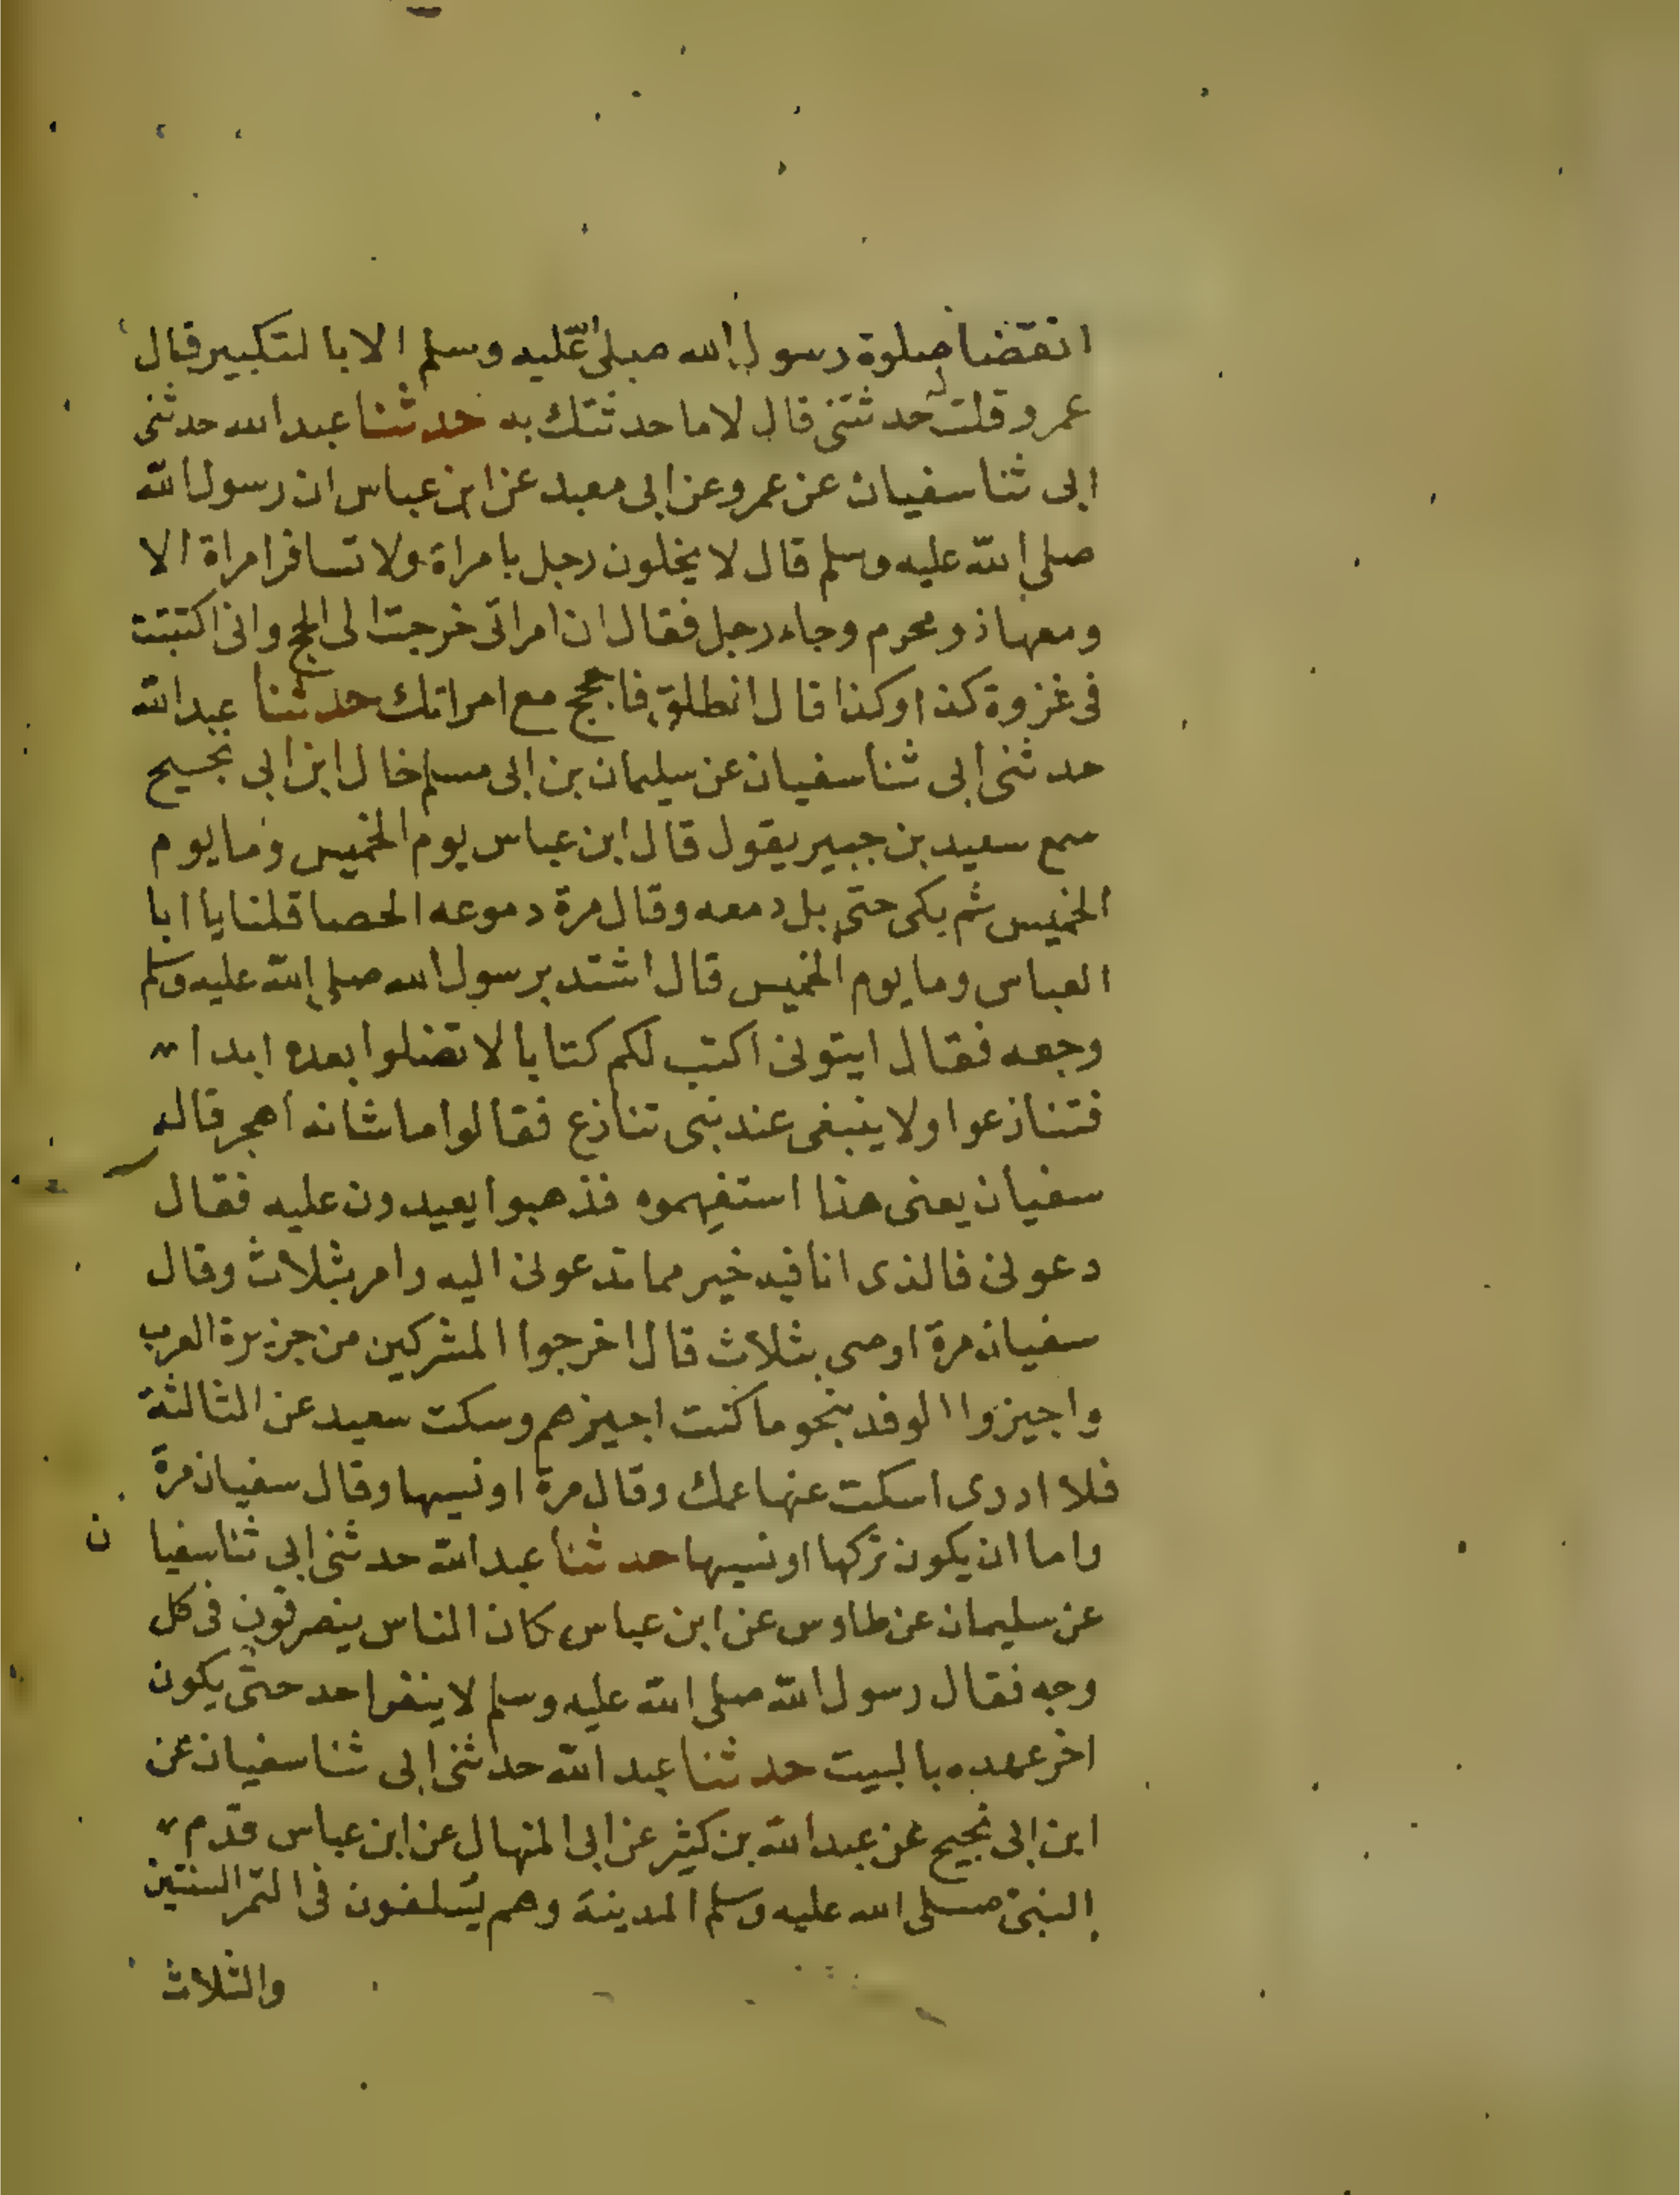 انقضا صلوة رسول الله صلى الله عليه وسلم الا بالتكبير قال
عمرو قلت له حدثتنى قال لا ما حدثتك به حدثنا عبد الله حدثنى
ابى ثنا سفيان عن عمرو عن ابى معبد عن ابن عباس ان رسول الله
صلى الله عليه وسلم قال لا يخلون رجل بامراة ولا تسافر امراة الا
ومعها ذو محرم وجاء رجل فقال ان امراتى خرجت الى الحج وانى اكتتبت
فى غزوة كذا وكذا قال انطلق فاحجج مع امراتك حدثنا عبد الله
حدثنى ابى ثنا سفيان عن سليمان بن ابى مسلم خال ابن ابى نجيح
سمع سعيد بن جبير يقول قال ابن عباس يوم الخميس وما يوم
الخميس ثم بكى حتى بل دمعه وقال مرة دموعه الحصا قلنا يا ابا
العباس وما يوم الخميس قال اشتد برسول الله صلى الله عليه وسلم
وجعه فقال ايتونى اكتب لكم كتابا لا تضلوا بعده ابدا
فتنازعوا ولا ينبغى عند نبى تنازع فقالوا ما شانه اهجر قال
سفيان يعنى هذا استفهموه فذهبوا يعيدون عليه فقال
دعونى فالذى انا فيه خير مما تدعونى اليه وامر بثلاث وقال
سفيان مرة اوصى بثلاث قال اخرجوا المشركين من جزيرة العرب
واجيزوا الوفد بنحو ما كنت اجيزهم وسكت سعيد عن الثالثة
فلا ادرى اسكت عنها عمك وقال مرة او نسيها وقال سفيان مرة
واما ان يكون تركها او نسيها حدثنا عبد الله حدثنى ابى ثنا سفيا ن
عن سليمان عن طاوس عن ابن عباس كان الناس ينصرفون فى كل
وجه فقال رسول الله صلى الله عليه وسلم لا ينفر احد حتى يكون
اخر عهده بالبيت حدثنا عبد الله حدثنى ابى ثنا سفيان عن
ابن ابى نجيح عن عبد الله بن كثير عن ابى المنهال عن ابن عباس قدم
النبى صلى الله عليه وسلم المدينة وهم يسلفون فى التمر السنتين
والثلاث